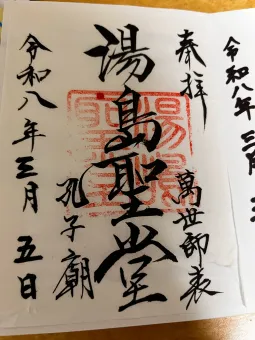 奉拝
萬世師表
湯島聖堂
孔子廟
令和八年三月五日
湯島聖堂
令和八年三月